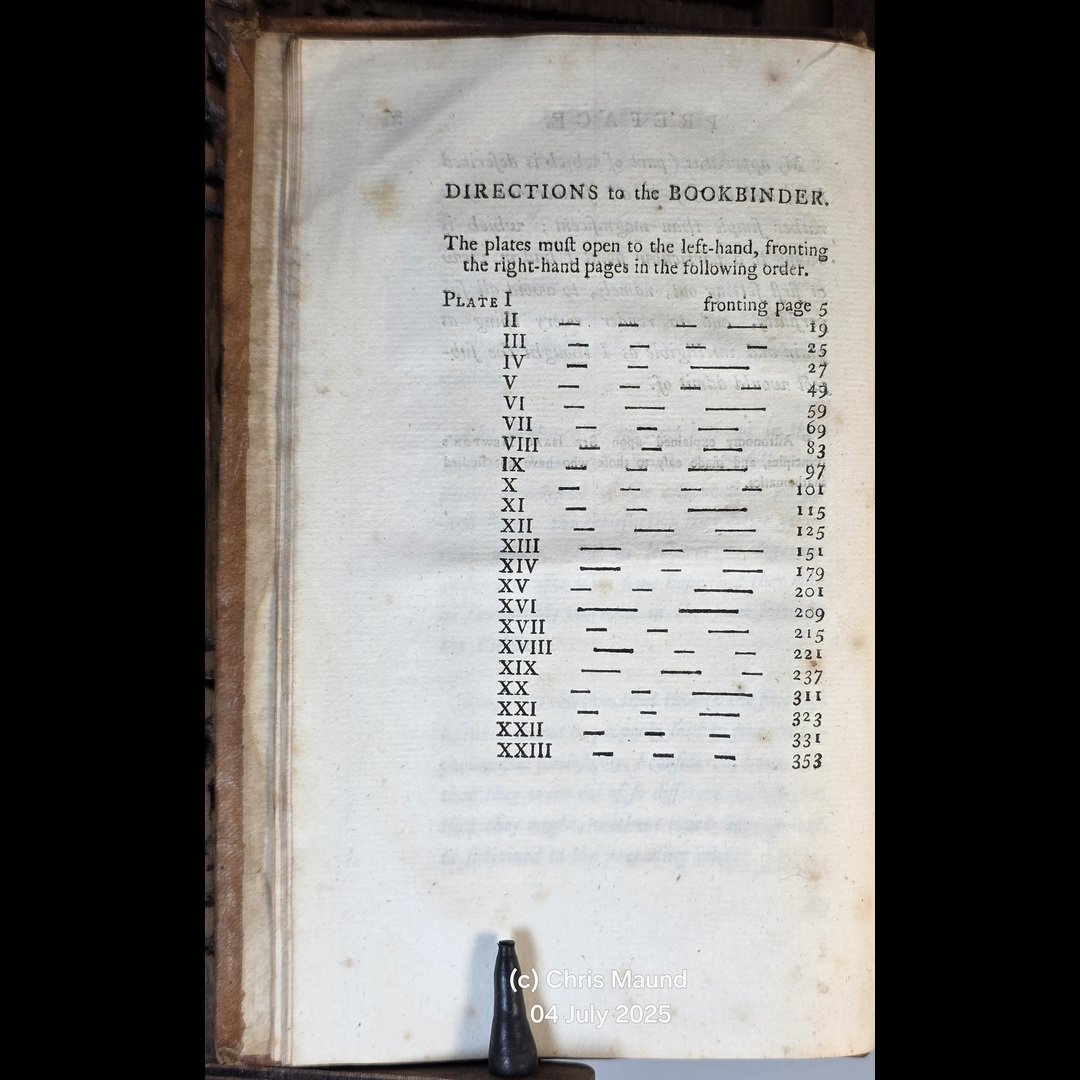 DIRECTIONS to the BOOKBINDER.
The plates muſt open to the left-hand, fronting
the right-hand pages in the following order.
PLATE I fronting page 5
II — — — — 19
III — — — — 25
IV — — — 27
V — — — — 49
VI — — — 59
VII — — — 69
VIII — — — 83
IX — — — 97
X — — — — 101
XI — — — 115
XII — — — 125
XIII — — — 151
XIV — — — 179
XV — — — 201
XVI — — 209
XVII — — — 215
XVIII — — — 221
XIX — — — 237
XX — — — 311
XXI — — — 323
XXII — — — 331
XXIII — — — 353
(c) Chris Maund
04 July 2025